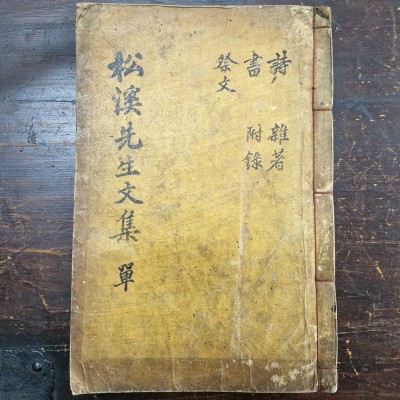 松溪先生文集 單
詩 雜著
書 附錄
祭文